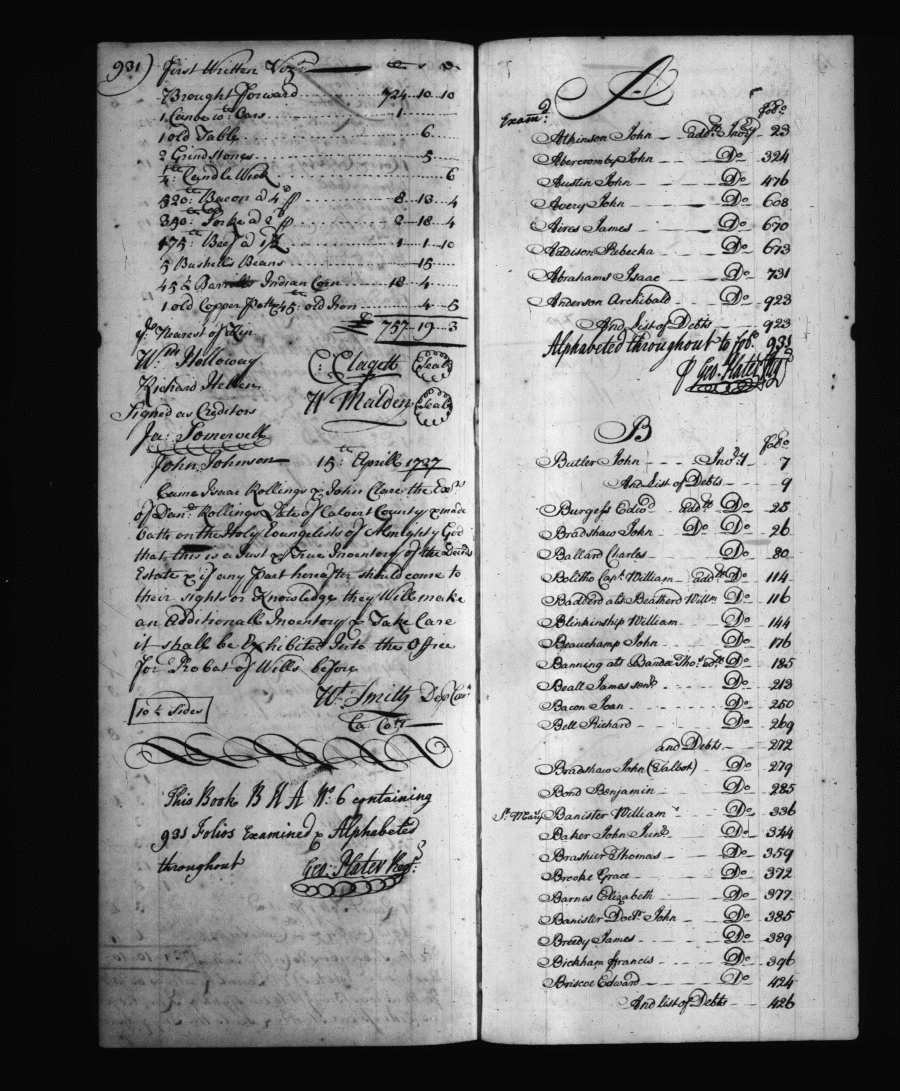 931)
First Written Viz.t £ s D
Brought forward 724..10..10
1 Canoe wth Oars 1
1 old Table 6
2 Grind Stones 5
4lb Candle Wick 6
520lb Bacon a 4d ℔ 8..13..4
350lb Porke a 2d ℔ 2..18..4
175lb Beef a 1½ 1..1..10
5 Bushells Beans 15
45½ Barrells Indian Corn 18..4
1 old Copper Pott 45lb old Iron 4..5
£ 757..19..3
ye Nearest of Kin
Wm Holloway C: Clagett (Seal)
Richard Hellen
Signed as Creditors W Malden (Seal)
Ja: Somervell
John Johnson 15th Aprill 1727
Came Isaac Rollings & John Clare the Exrs
of Danl Rollings Late of Calvert County & made
Oath on the Holy Evangelists of Almighty God
that this is a Just & True Inventory of the Deceds
Estate & if any Part hereafter should come to
their sights or Knowledge they Will make
an Additionall Inventory & Take Care
it shall be Exhibited Into the Office
for Probat of Wills before
Wt: Smith Dep Comr
10½ Sides
Ca: Coty
This Book B H A No 6 containing
931 Folios Examined & Alphabeted
throughout Geo: Plater Regr
A
Examd folo
Atkinson John addll Invry 23
Abercromby John Do 324
Austin John Do 476
Avery John Do 608
Aires James Do 670
Addison Rebecka Do 673
Abrahams Isaac Do 731
Anderson Archibald Do 923
And List of Debts 923
Alphabeted throughout to fo. 931
℔ Geo: Plater Regr
B
folo
Butler John Invry 7
And List of Debts 9
Burgess Edwd addll Do 25
Bradshaw John Do Do 26
Ballard Charles Do 80
Bolitho Capt William addll Do 114
Badderd als Beatherd Willm 116
Blinkinship William 144
Beauchamp John Do 176
Banning als Bandee Thos addll Do 185
Beall James senr Do 213
Bacon Joan Do 250
Bell Richard Do 269
and Debts 272
Bradshaw John (Talbot) Do 279
Bond Benjamin Do 285
St Marys Banister William Do 336
Baker John Junr Do 344
Brashier Thomas Do 359
Brooke Grace Do 372
Barnes Elizabeth Do 377
Banister Doctr John Do 385
Breedy James Do 389
Bickham Francis Do 396
Briscoe Edward Do 424
And list of Debts 426